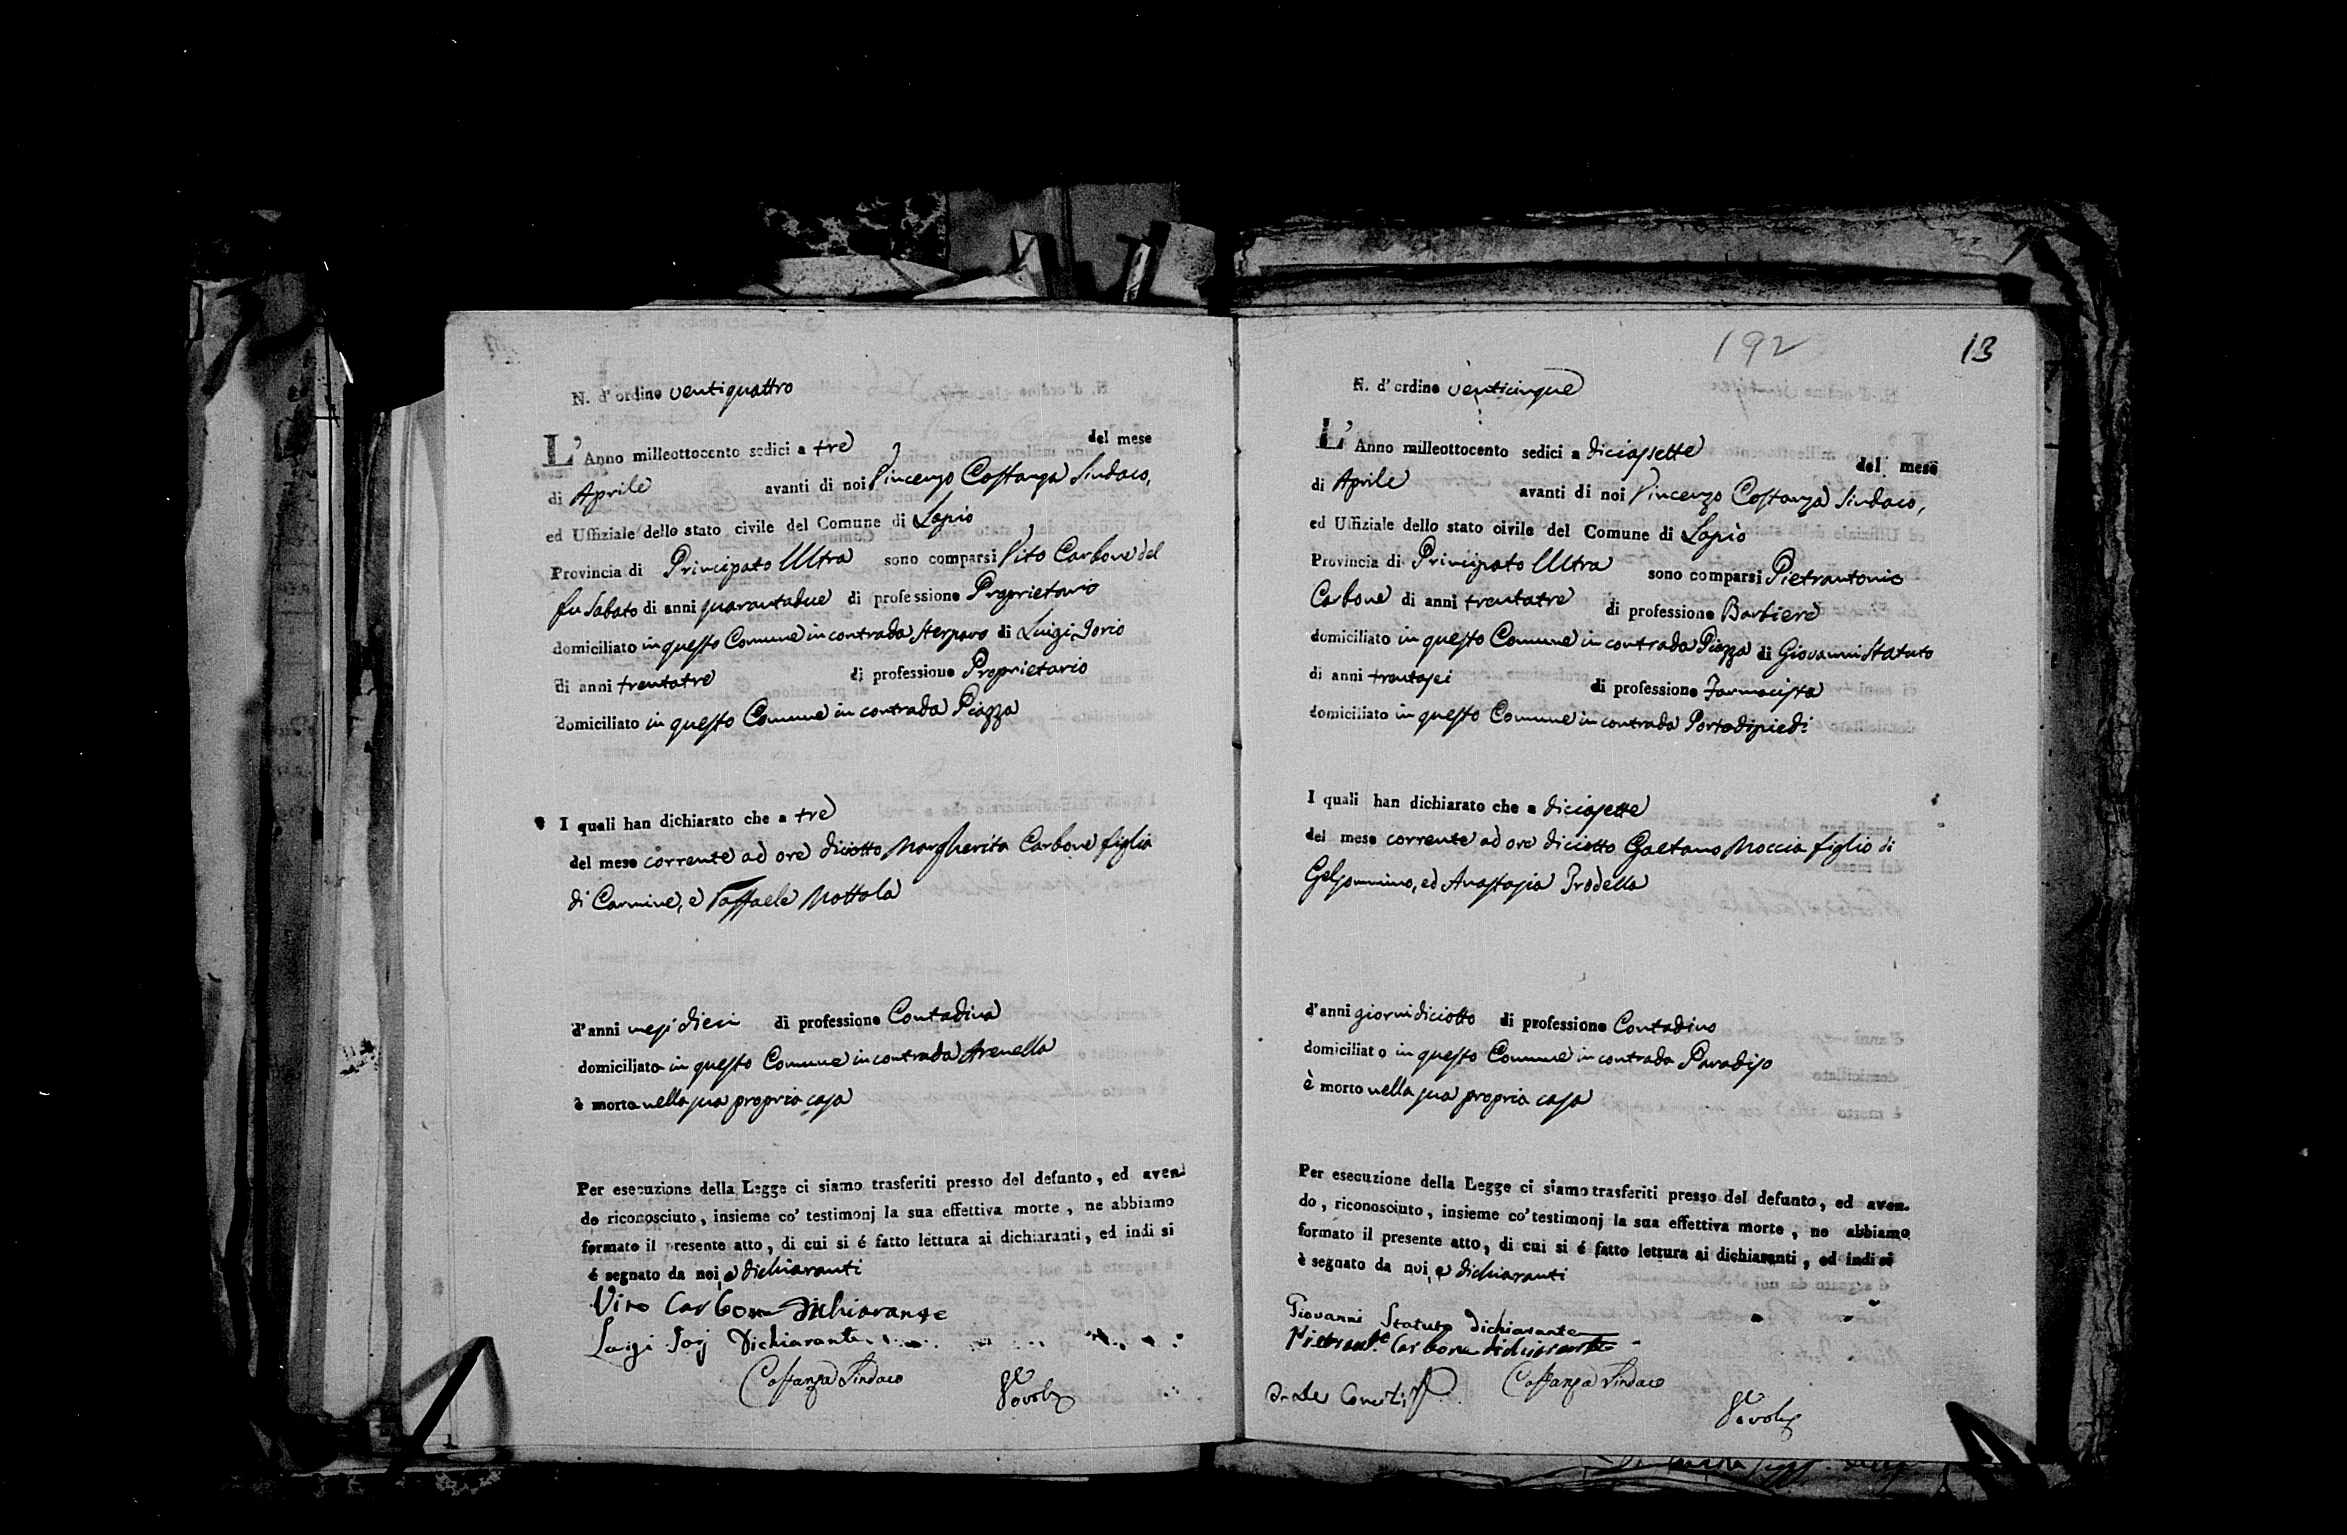 N. d' ordine ventiquattro
L' Anno milleottocento sedici a tre del mese
di Aprile avanti di noi Vincenzo Costanza Sindaco,
ed Uffiziale dello stato civile del Comune di Lapio
Provincia di Principato Ultra sono comparsi Vito Carbone del
fu Sabato di anni quarantadue di professione Proprietario
domiciliato in questo Comune in contrada Sterparo di Luigi Jorio
di anni trentatre di professione Proprietario
domiciliato in questo Comune in contrada Piazza
I quali han dichiarato che a tre
del mese corrente ad ore diciotto Margherita Carbone figlia
di Carmine, e Raffaele Mottola
d'anni mesi dieci di professione Contadina
domiciliato in questo Comune in contrada Arenella
è morto nella sua propria casa
Per esecuzione della Legge ci siamo trasferiti presso del defunto, ed aven-
do riconosciuto, insieme co' testimonj la sua effettiva morte, ne abbiamo
formato il presente atto, di cui si é fatto lettura ai dichiaranti, ed indi si
é segnato da noi, e dichiaranti
Vito Carbone dichiarante
Luigi Dichiarante
Costanza Sindaco
192
13
N. d' ordine venticinque
L' Anno milleottocento sedici a diciassette del mese
di Aprile avanti di noi Vincenzo Costanza Sindaco,
ed Uffiziale dello stato civile del Comune di Lapiò
Provincia di Principato Ultra sono comparsi Pietrantonio
Carbone di anni trentatre di professione Barbiere
domiciliato in questo Comune in contrada Piazza di Giovanni Statuto
di anni trentasei di professione Farmacista
domiciliato in questo Comune in contrada Portadipiedi
I quali han dichiarato che a diciasette
del mese corrente ad ore diciotto Gaetano Moccia figlio di
Gelsommino, ed Anastasia Prodella
d'anni giorni diciotto di professione Contadino
domiciliato in questo Comune in contrada Paradiso
è morto nella sua propria casa
Per esecuzione della Legge ci siamo trasferiti presso del defunto, ed aven-
do, riconosciuto, insieme co' testimonj la sua effettiva morte, ne abbiamo
formato il presente atto, di cui si é fatto lettura ai dichiaranti, ed indi si
è segnato da noi, e dichiaranti
Giovanni Statuto dichiarante
Pietrant.o Carbone dichiarante
Costanza Sindaco